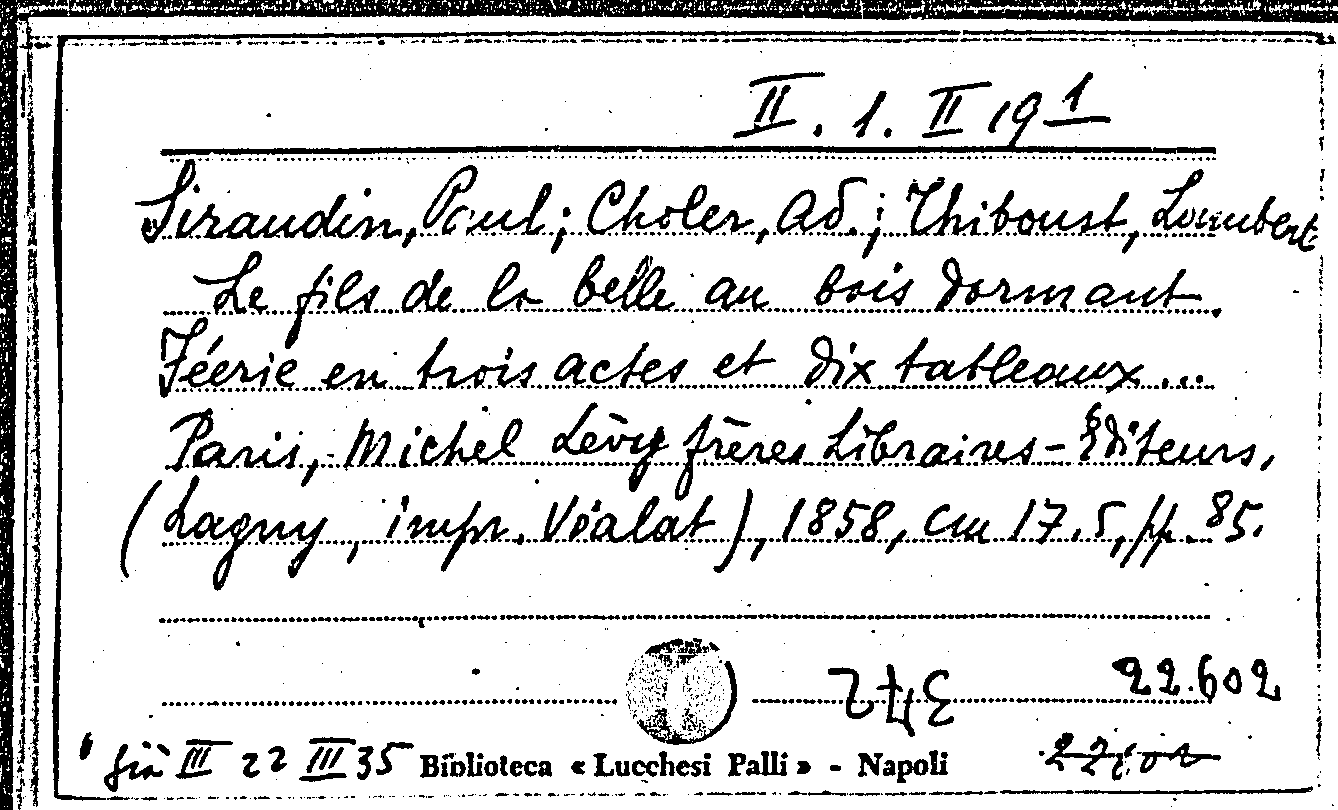 II. 1. II 19 1
Siraudin, Paul; Choler, Ad.; Thiboust, Lambert
Le fils de la belle au bois dormant.
Féerie en trois actes et dix tableaux...
Paris, Michel Lévy frères Libraires-Editeurs,
(Lagny, impr. Vialat), 1858, cm 17.5, pp. 85.
22.602
già III 22 III 35 Biblioteca « Lucchesi Palli » - Napoli